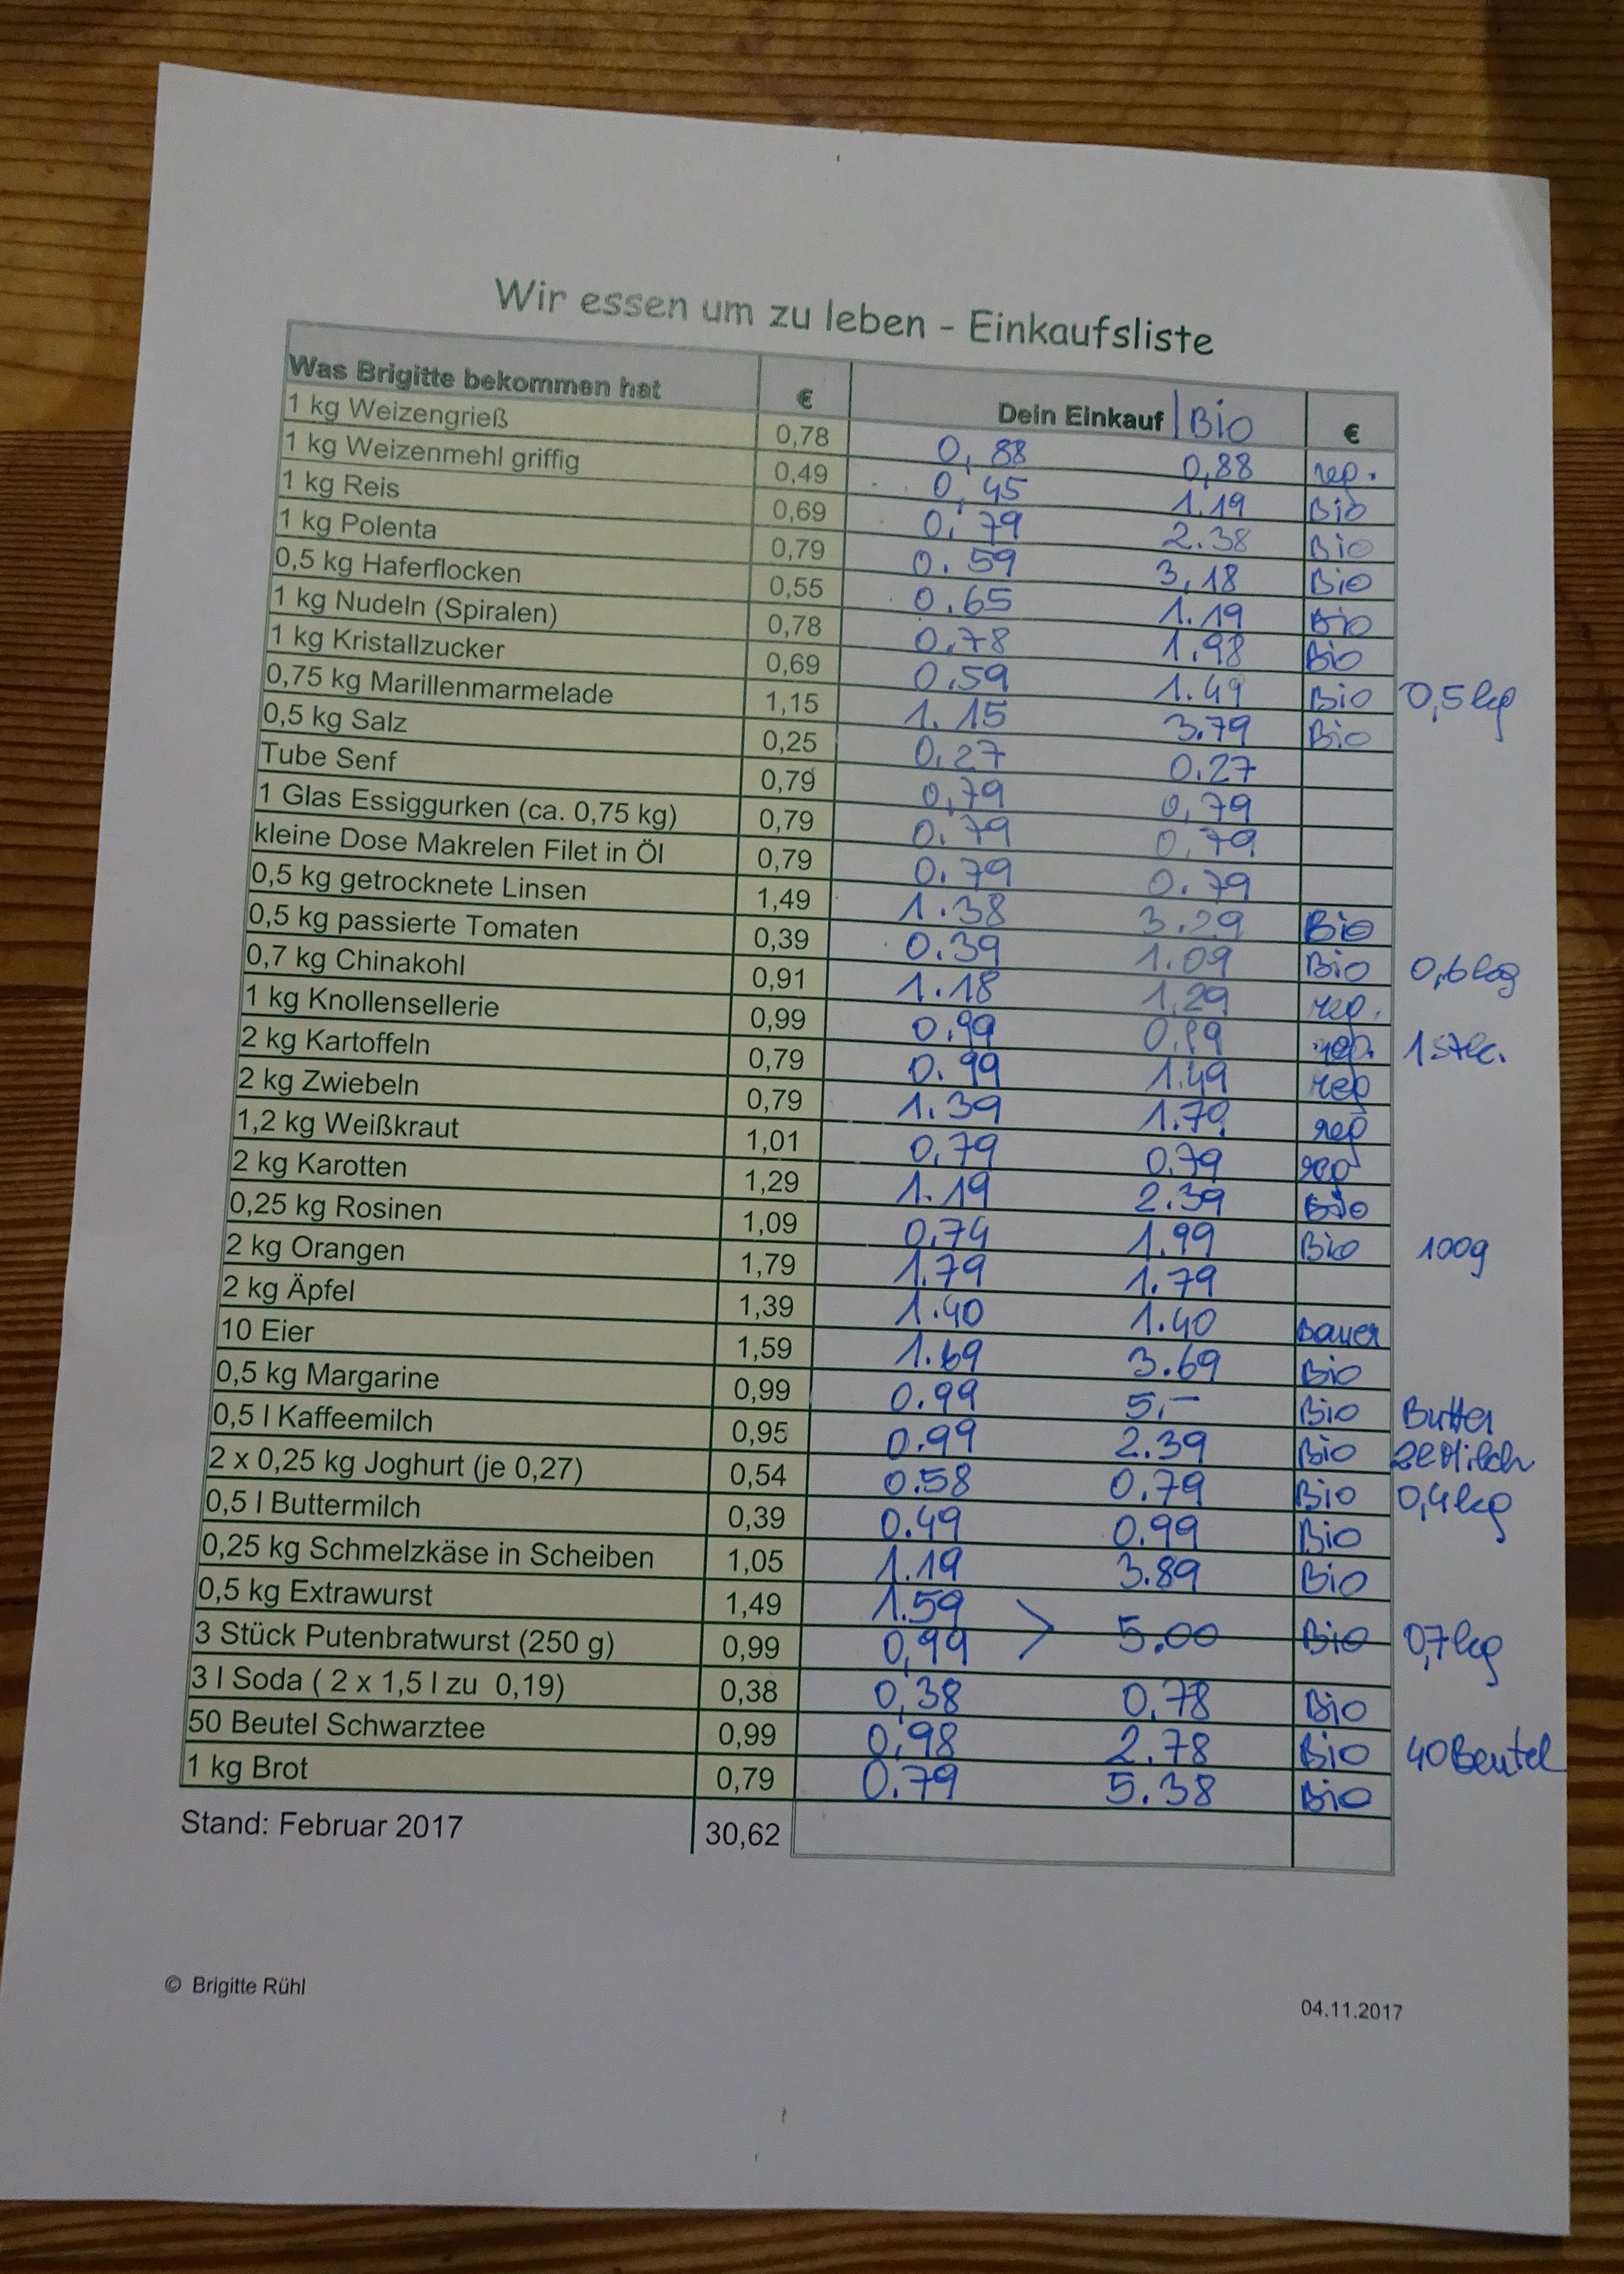 Wir essen um zu leben - Einkaufsliste
Was Brigitte bekommen hat € Dein Einkauf | Bio €
1 kg Weizengrieß 0,78 0,88 0,88 reg.
1 kg Weizenmehl griffig 0,49 0,45 1.19 Bio
1 kg Reis 0,69 0,79 2.38 Bio
1 kg Polenta 0,79 0.59 3,18 Bio
0,5 kg Haferflocken 0,55 0.65 1.19 Bio
1 kg Nudeln (Spiralen) 0,78 0.78 1.98 Bio
1 kg Kristallzucker 0,69 0.59 1.49 Bio 0,5 kg
0,75 kg Marillenmarmelade 1,15 1.15 3.79 Bio
0,5 kg Salz 0,25 0,27 0.27
Tube Senf 0,79 0,79 0,79
1 Glas Essiggurken (ca. 0,75 kg) 0,79 0.79 0,79
kleine Dose Makrelen Filet in Öl 0,79 0.79 0.79
0,5 kg getrocknete Linsen 1,49 1.38 3.29 Bio
0,5 kg passierte Tomaten 0,39 0.39 1.09 Bio 0,6 kg
0,7 kg Chinakohl 0,91 1.18 1,29 reg.
1 kg Knollensellerie 0,99 0.99 reg. 1 Stk.
2 kg Kartoffeln 0,79 0.99 1.49 reg
2 kg Zwiebeln 0,79 1.39 1.79 reg
1,2 kg Weißkraut 1,01 0,79 0,79 reg
2 kg Karotten 1,29 1.19 2.39 Bio
0,25 kg Rosinen 1,09 0,74 1.99 Bio 100g
2 kg Orangen 1,79 1.79 1.79
2 kg Äpfel 1,39 1.40 1.40 Bauer
10 Eier 1,59 1.69 3.69 Bio
0,5 kg Margarine 0,99 0.99 5,- Bio Butter
0,5 l Kaffeemilch 0,95 0.99 2.39 Bio
2 x 0,25 kg Joghurt (je 0,27) 0,54 0.58 0.79 Bio 0,4 kg
0,5 l Buttermilch 0,39 0.49 0.99 Bio
0,25 kg Schmelzkäse in Scheiben 1,05 1.19 3.89 Bio
0,5 kg Extrawurst 1,49 1.59
3 Stück Putenbratwurst (250 g) 0,99 0,99 > 5.00 Bio 0,7 kg
3 l Soda ( 2 x 1,5 l zu 0,19) 0,38 0,38 0,78 Bio
50 Beutel Schwarztee 0,99 0,98 2.78 Bio 40 Beutel
1 kg Brot 0,79 0.79 5.38 Bio
Stand: Februar 2017 30,62
© Brigitte Rühl 04.11.2017